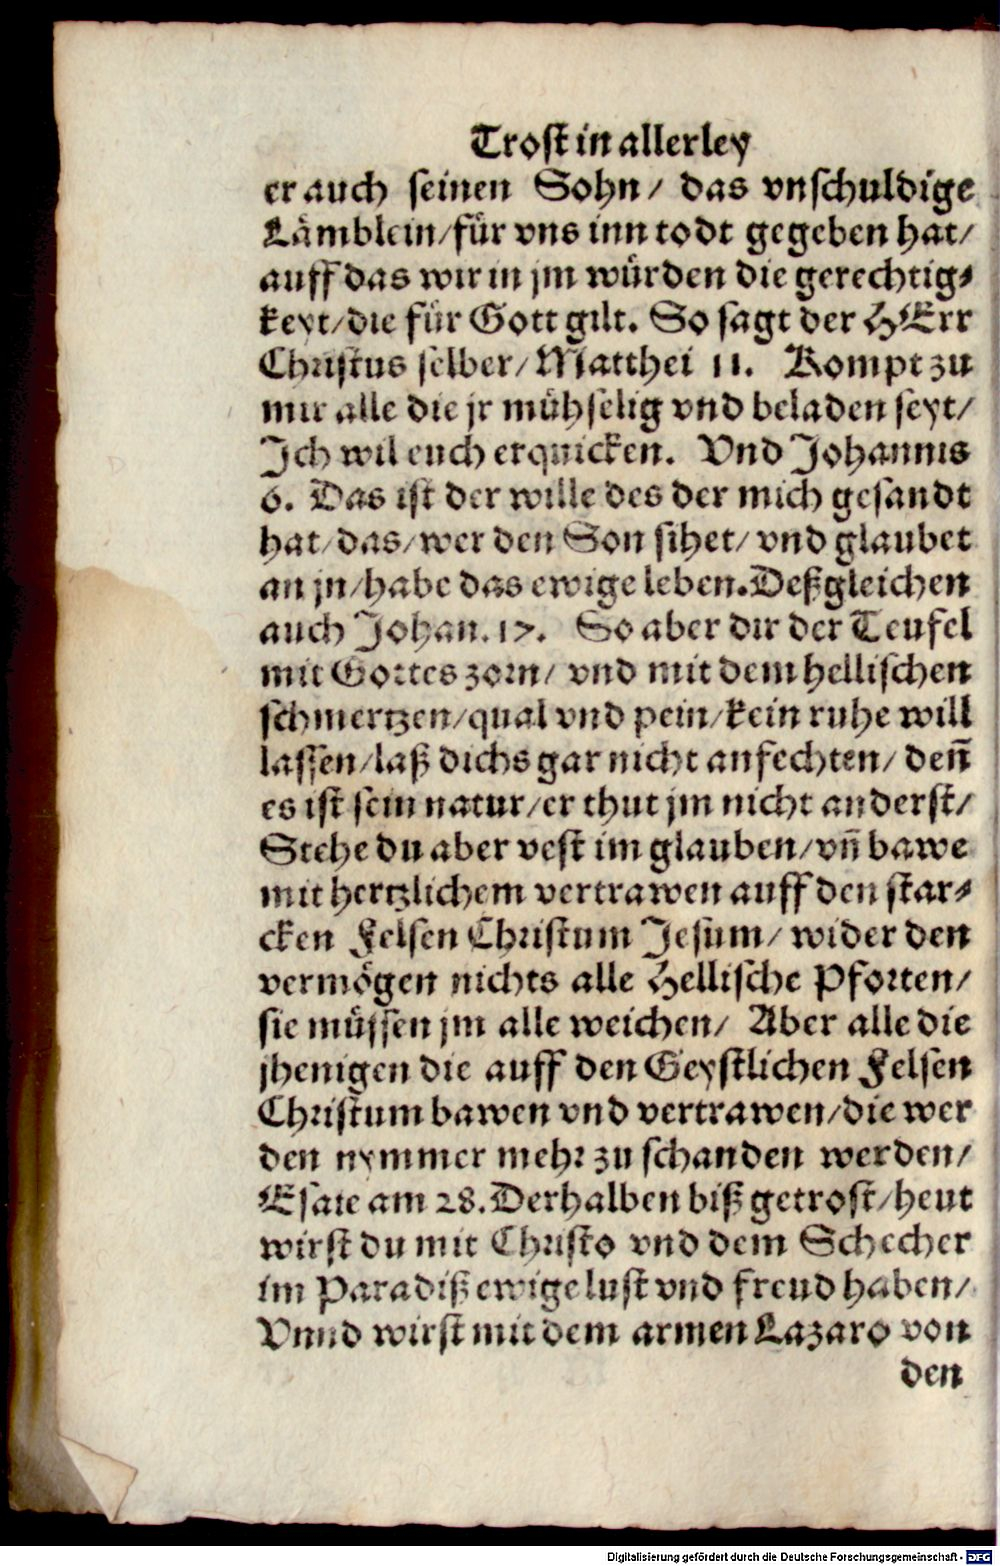 Trost in allerley
er auch seinen Sohn/ das vnschuldige
Lämblein/für vns inn todt gegeben hat/
auff das wir in jm würden die gerechtig-
keyt/die für Gott gilt. So sagt der HErr
Christus selber/Matthei 11. Kompt zu
mir alle die jr mühselig vnd beladen seyt/
Ich wil euch erquicken. Vnd Johannis
6. Das ist der wille des der mich gesandt
hat/das/wer den Son sihet/vnd glaubet
an jn/habe das ewige leben.Deßgleichen
auch Johan.17. So aber dir der Teufel
mit Gottes zorn/ vnd mit dem hellischen
schmertzen/qual vnd pein/kein ruhe will
lassen/laß dichs gar nicht anfechten/ deñ
es ist sein natur/er thut jm nicht anderst/
Stehe du aber vest im glauben/vñ bawe
mit hertzlichem vertrawen auff den star-
cken Felsen Christum Jesum/ wider den
vermögen nichts alle Hellische Pforten/
sie müssen jm alle weichen/ Aber alle die
jhenigen die auff den Geystlichen Felsen
Christum bawen vnd vertrawen/die wer
den nymmer mehr zu schanden werden/
Esaie am 28.Derhalben biß getrost/heut
wirst du mit Christo vnd dem Schecher
im Paradiß ewige lust vnd freud haben/
Vnnd wirst mit dem armen Lazaro von
den
Digitalisierung gefördert durch die Deutsche Forschungsgemeinschaft - DFG